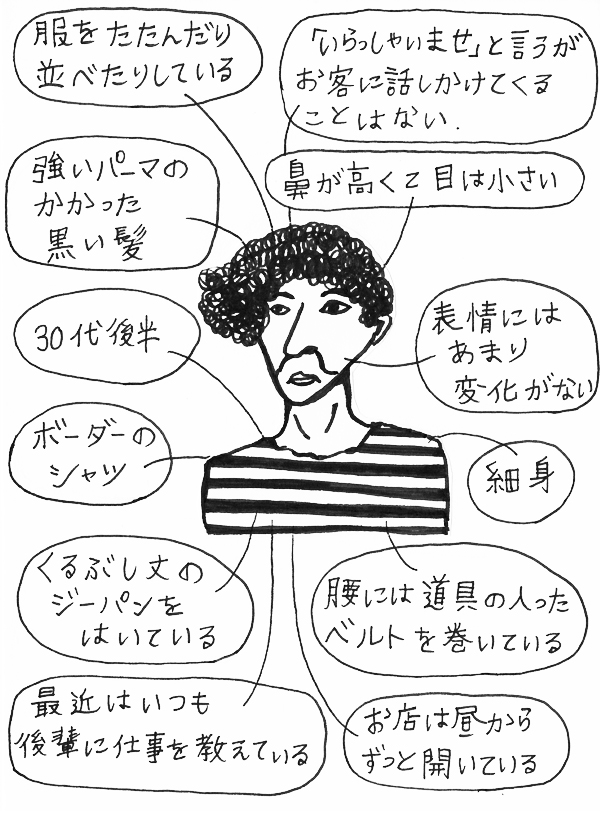 服をたたんだり
並べたりしている
「いらっしゃいませ」と言うが
お客に話しかけてくる
ことはない.
強いパーマの
かかった
黒い髪
鼻が高くて目は小さい
30代後半
表情には
あまり
変化がない
ボーダーの
シャツ
細身
くるぶし丈の
ジーパンを
はいている
腰には道具の入った
ベルトを巻いている
最近はいつも
後輩に仕事を教えている
お店は昼から
ずっと開いている